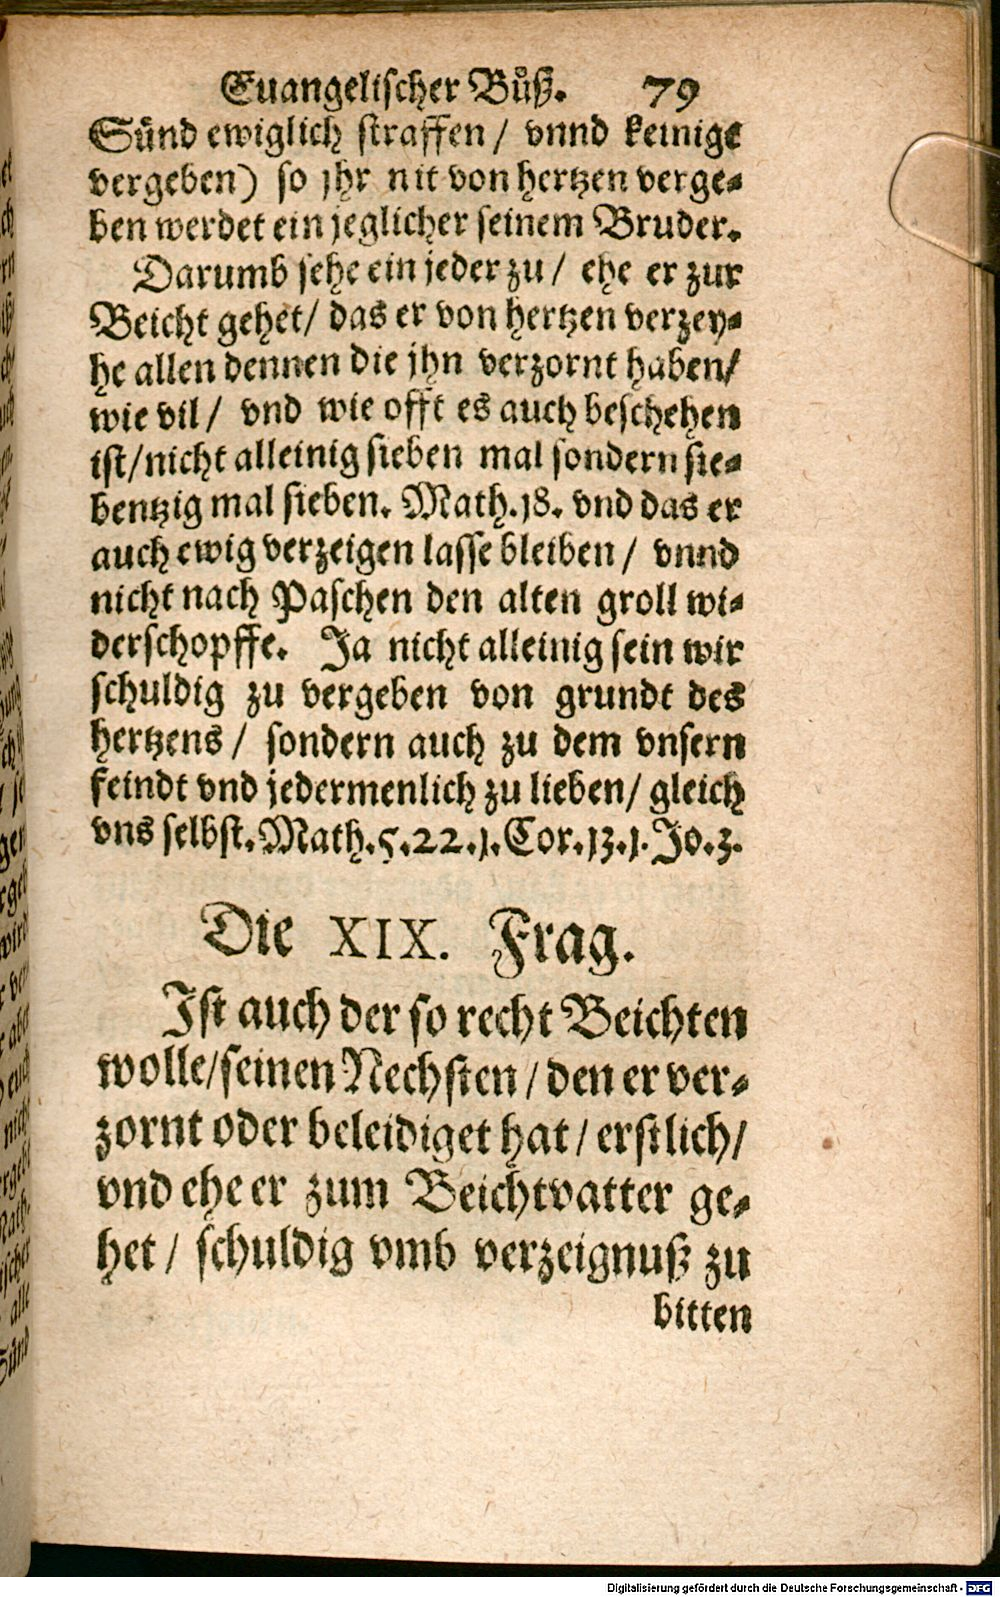 Euangelischer Bůß. 79
Sünd ewiglich straffen / vnnd keinige
vergeben) so jhr nit von hertzen verge⸗
ben werdet ein jeglicher seinem Bruder.
Darumb sehe ein jeder zu / ehe er zur
Beicht gehet / das er von hertzen verzey⸗
he allen dennen die jhn verzornt haben /
wie vil / vnd wie offt es auch beschehen
ist / nicht alleinig sieben mal sondern sie⸗
bentzig mal sieben. Math. 18. vnd das er
auch ewig verzeigen lasse bleiben / vnnd
nicht nach Paschen den alten groll wi⸗
derschopffe. Ja nicht alleinig sein wir
schuldig zu vergeben von grundt des
hertzens / sondern auch zu dem vnsern
feindt vnd jedermenlich zu lieben / gleich
vns selbst. Math. 5. 22. 1. Cor. 13. 1. Jo. 3.
Die XIX. Frag.
Ist auch der so recht Beichten
wolle / seinen Nechsten / den er ver⸗
zornt oder beleidiget hat / erstlich /
vnd ehe er zum Beichtvatter ge⸗
het / schuldig vmb verzeignuß zu
bitten
Digitalisierung gefördert durch die Deutsche Forschungsgemeinschaft - DFG